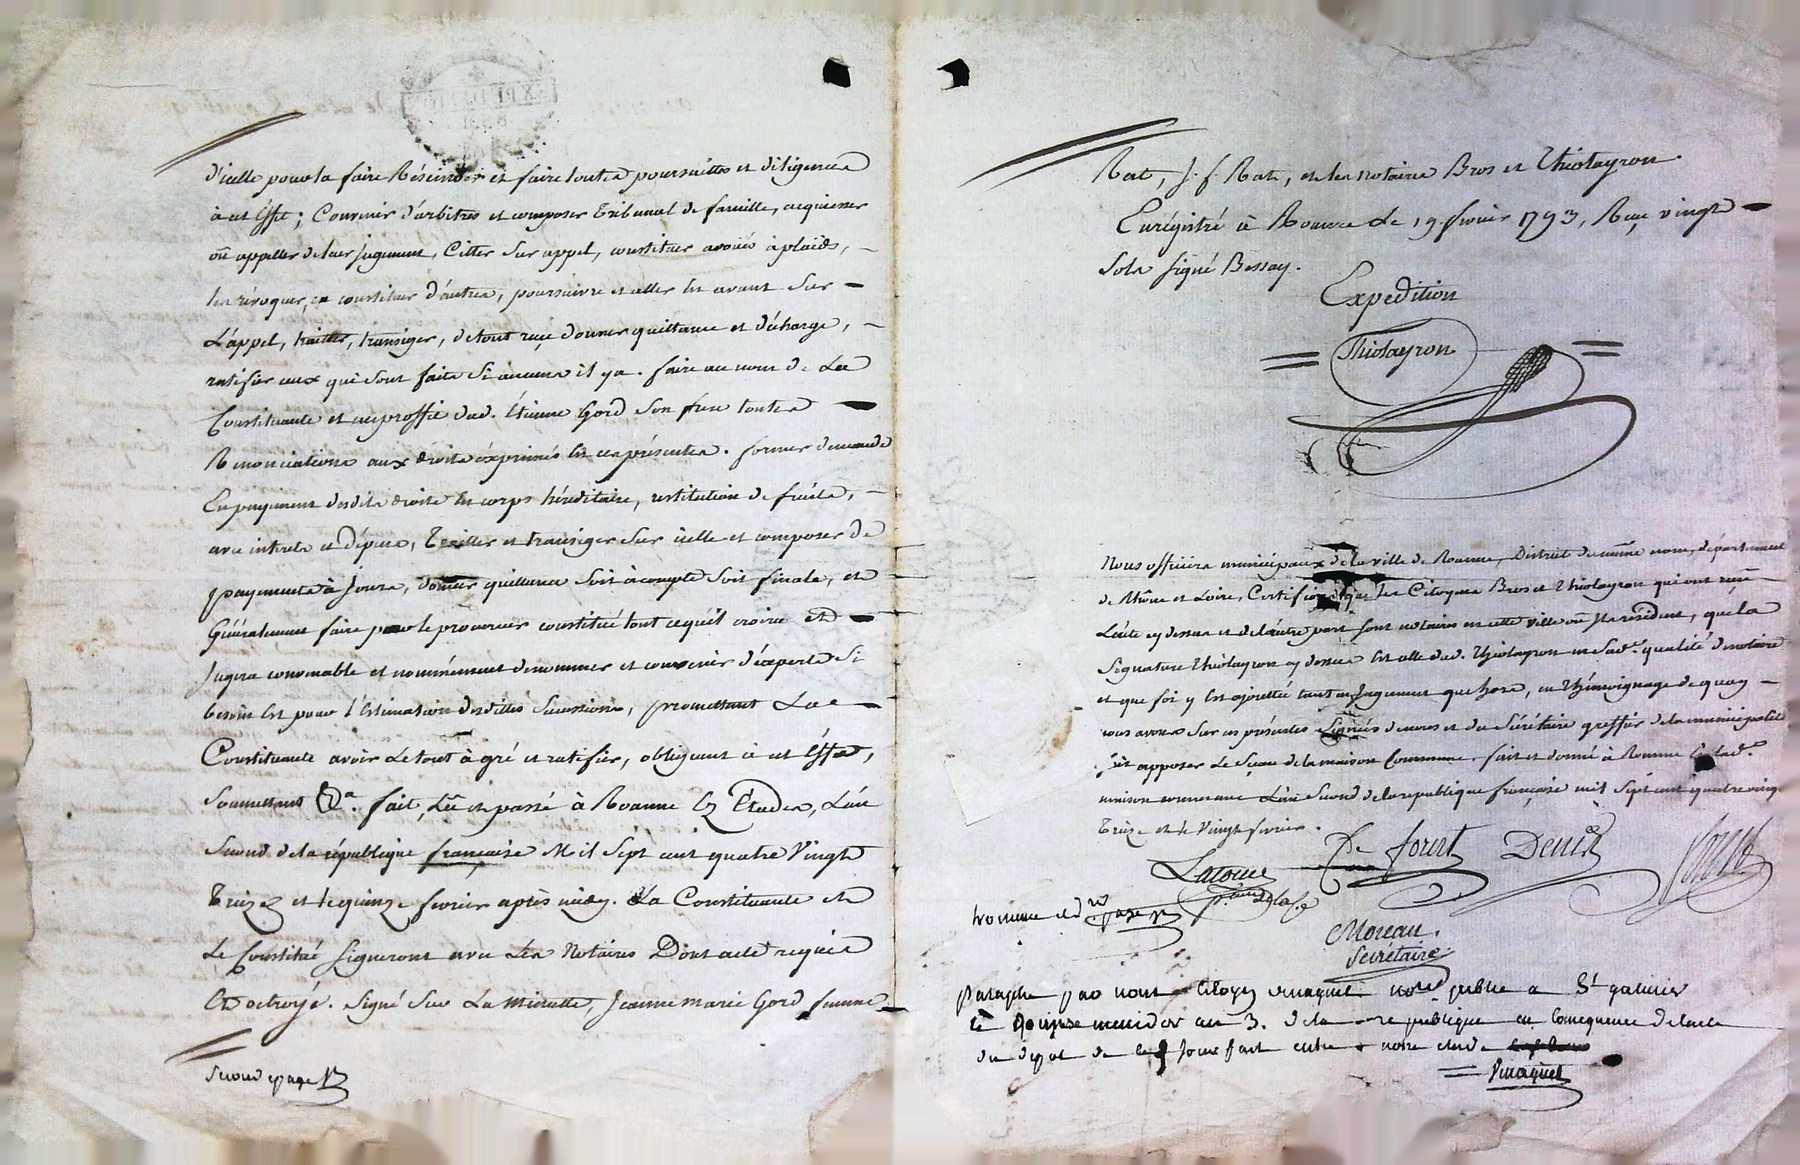 d'icelle pour la faire Réscinder et faire toutes poursuittes et diligences
à cet Effet; Convenir d'arbitres et composer Tribunal de famille, acquiesser
où appeller de leur jugement, Citer sur appel, constituer avoués à plaids,
les révoquer, en constituer d'autres, poursuivre et aller En avant sur
L'appel, traitter, transiger, de tout reçu donner quittance et décharge,
ratifier ceux qui sont faits si aucuns il y a. faire au nom de La
Constituante et au proffit dud. Etienne Gord son frere toutes
Renonciations aux droits éxprimés En ces présentes. former demande
En payement desdits droits En corps héréditaire, restitution de fruits,
avec interets et dépens, Traitter et transiger sur icelle et composer de
payements à jours, donner quittance soit àcompte soit finale, et
Généralement faire pour le procureur constitué tout ce qu'il croira et
Jugera convenable et nommément de nommer et convenir d'éxperts si
besoin Est pour l'Estimation desdittes successions, promettant La
Constituante avoir Le tout à gré et ratifier, obligeant à cet Effet,
Soumettant &a. fait, Lû et passé à Roanne Ez Etudes, L'an
Second de la république française Mil Sept cent quatre Vingt
Treize et le quinze fevrier après midy. La Constituante et
Le Constitué signeront avec Les Notaires Dont acte requis
Et octroyé. Signé Sur La Minutte, Jeanne marie Gord femme
Second page
Rat, J. f. Rat, et les notaires Bros et Thiolayron.
Enrégistré à Roanne Le 19 fevrier 1793, Reçu vingt
Sols signé Bessay.
Expedition
Thiolayron
Nous officiers municipaux de la ville de Roanne, District de même nom, département
de Rhône et Loire, Certifions que les Citoyens Bros et Thiolayron qui ont reçu
L'acte cy dessus et de l'autre part sont notaires en cette ville où Ils résident, que la
Signature Thiolayron cy dessus Est celle dud. Thiolayron en sad.e qualité de notaire
et que foi y Est ajouttée tant en Jugement que hors, en thémoignage de quoy
nous avons sur ces présentes Signées de nous et du Sécrétaire greffier de la municipalité
fait apposer Le Sçeau de la maison Commune. fait et donné à Roanne En lad.e
maison commune L'an Second de la republique françoise mil sept cent quatre vingt
Treize et le Vingt fevrier.
Latour De forest Denis
page
Moreau.
Secrétaire
Paraphe par nous Citoyen not.re public a St galmier
le quinze messidor an 3. de la republique en Consequence de lacte
du depot de Ce Jour fait entre notre etude